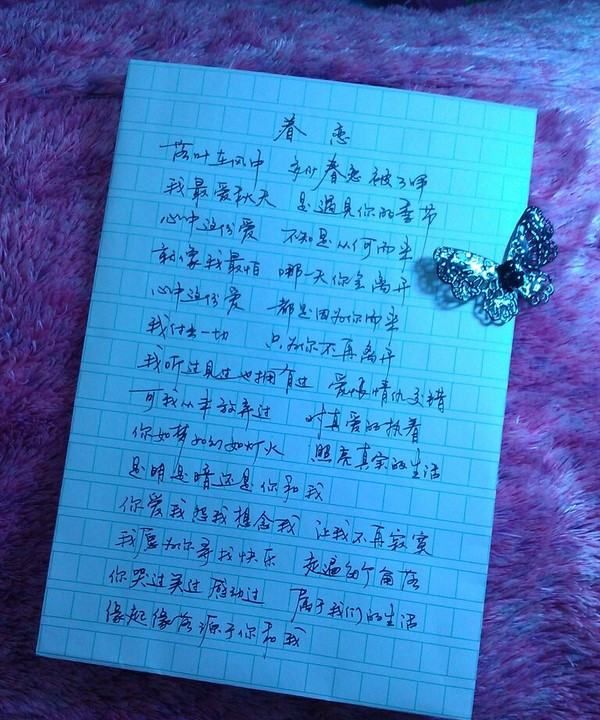 眷恋
落叶在风中 多少眷恋被
我最爱秋天 是遇见你的季节
心中这份爱 不知是从何而来
就像我最怕 哪一天你会离开
心中这份爱 都是因为你而来
我付出一切 只为你不再离开
我听过见过也拥有过 爱恨情仇交错
可我从未放弃过 对真爱的执着
你如梦如幻如灯火 照亮真实的生活
是明是暗还是你和我
你爱我想我想念我 让我不再寂寞
我愿为你寻找快乐 走遍每个角落
你哭过笑过感动过 属于我们的生活
缘起缘落源于你和我